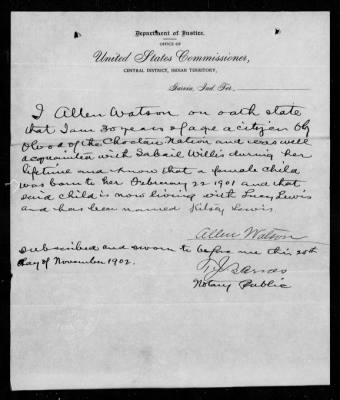 Department of Justice.
OFFICE OF
United States Commissioner,
CENTRAL DISTRICT, INDIAN TERRITORY,
Garvin, Ind. Ter.
I Allen Watson on oath state
that I am 30 years of age a citizen by
blood of the Choctaw Nation and was well
acquainted with Willis during her
lifetime and know that a female child
was born to her February 22 1901 and that
said child is now living with Lucy Lewis
and has been named Lewis
Allen Watson
Subscribed and sworn to before me this 20th
day of November 1902.
Notary Public